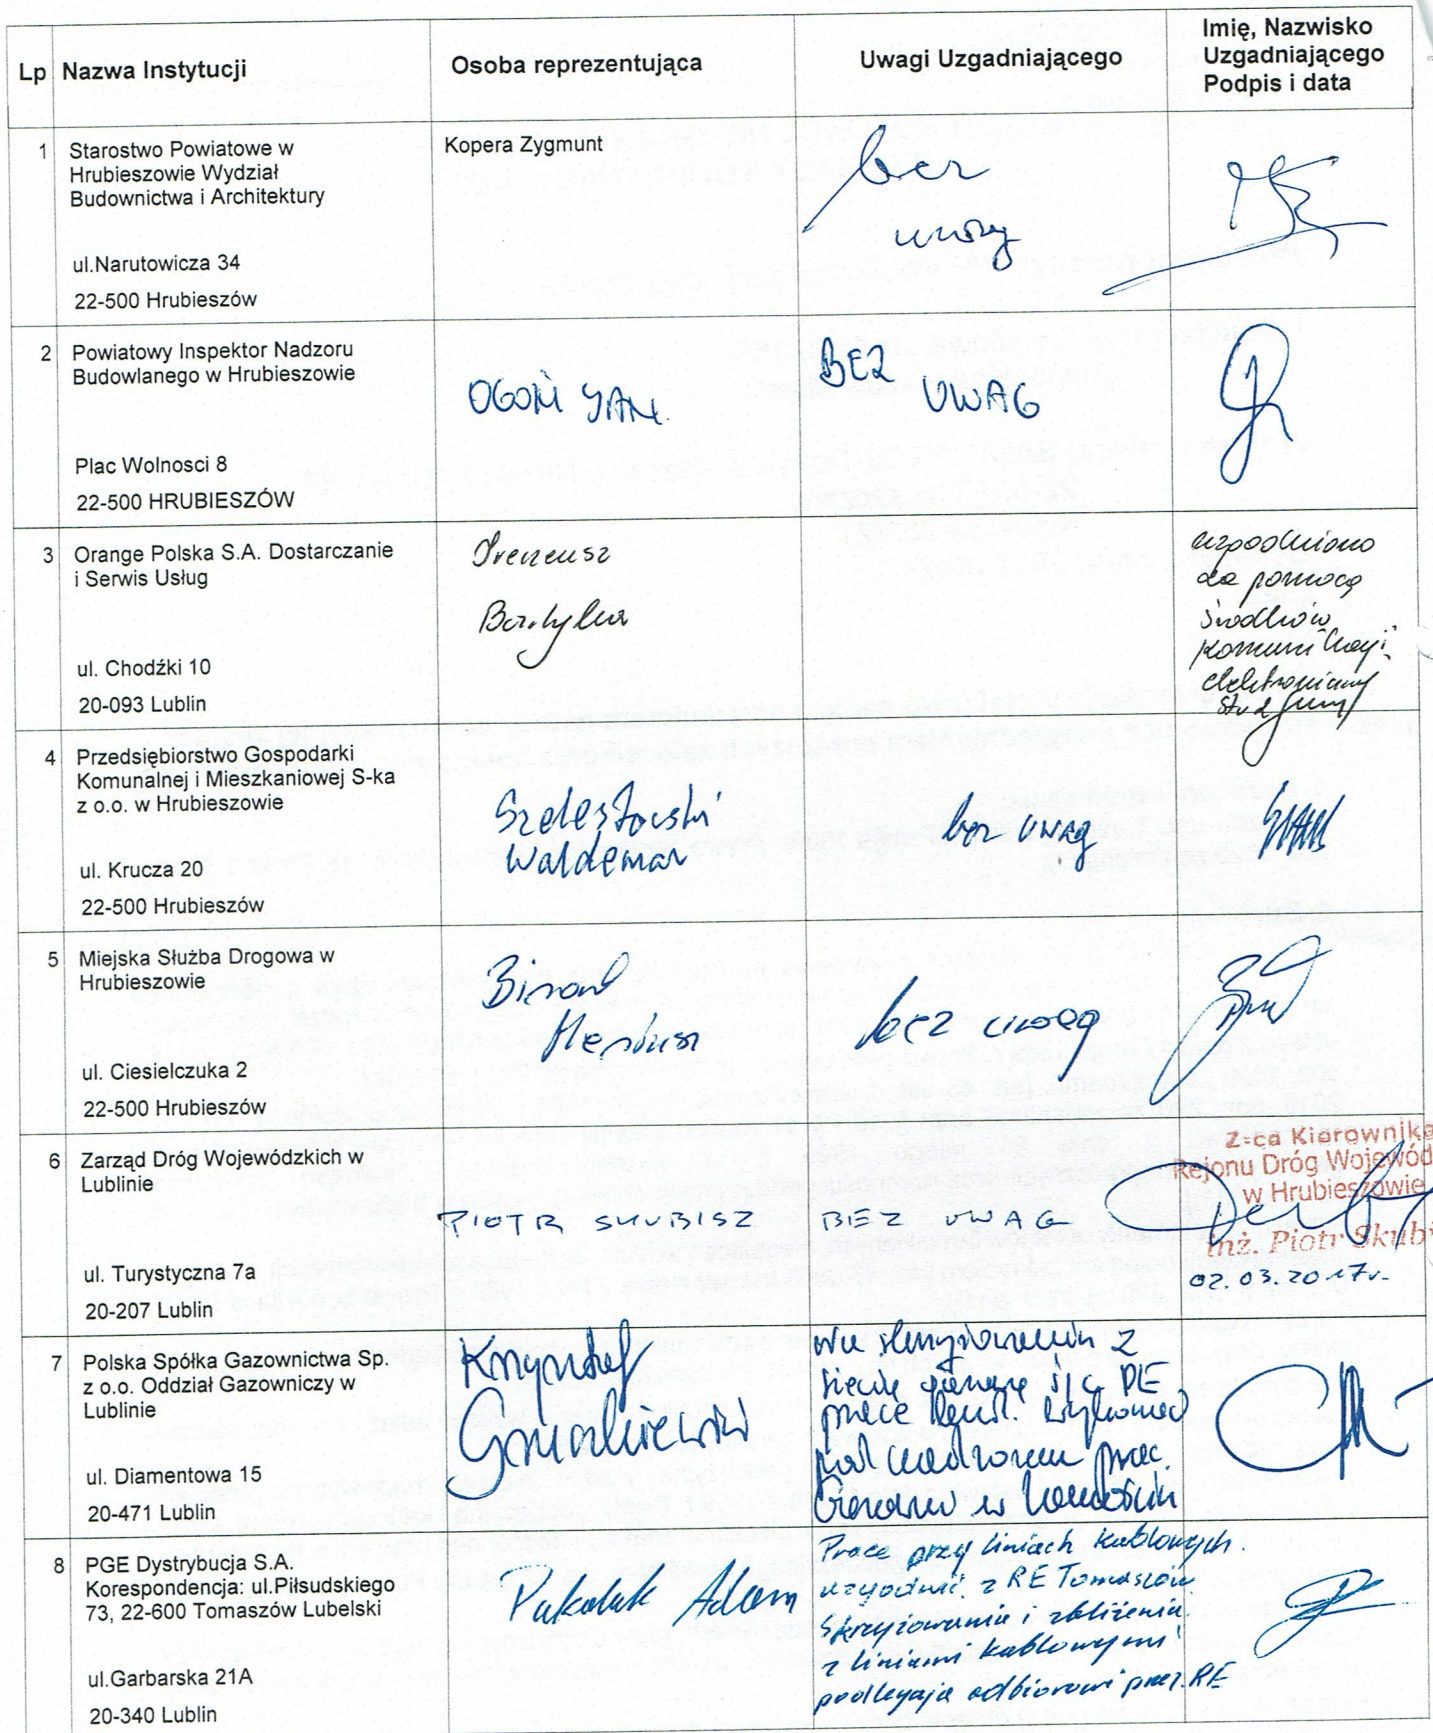 Lp Nazwa Instytucji Osoba reprezentująca Uwagi Uzgadniającego Imię, Nazwisko
Uzgadniającego
Podpis i data
1 Starostwo Powiatowe w
Hrubieszowie Wydział
Budownictwa i Architektury
ul.Narutowicza 34
22-500 Hrubieszów
Kopera Zygmunt
bez
uwag
2 Powiatowy Inspektor Nadzoru
Budowlanego w Hrubieszowie
Plac Wolnosci 8
22-500 HRUBIESZÓW
OGOŃ JAN
BEZ
UWAG
3 Orange Polska S.A. Dostarczanie
i Serwis Usług
ul. Chodźki 10
20-093 Lublin
Ireneusz
uzgodniono
za pomocą
środków
komunikacji
4 Przedsiębiorstwo Gospodarki
Komunalnej i Mieszkaniowej S-ka
z o.o. w Hrubieszowie
ul. Krucza 20
22-500 Hrubieszów
Szelestowski
Waldemar
bez uwag
5 Miejska Służba Drogowa w
Hrubieszowie
ul. Ciesielczuka 2
22-500 Hrubieszów
bez uwag
6 Zarząd Dróg Wojewódzkich w
Lublinie
ul. Turystyczna 7a
20-207 Lublin
PIOTR SKUBISZ
BEZ UWAG
Z-ca Kierownika
Rejonu Dróg Wojewód
w Hrubieszowie
inż. Piotr Skubi
02.03.2017r.
7 Polska Spółka Gazownictwa Sp.
z o.o. Oddział Gazowniczy w
Lublinie
ul. Diamentowa 15
20-471 Lublin
Krzysztof
na skrzyżowaniu z
siecią gazową PE
prace
pod nadzorem prac.
w Zamościu
8 PGE Dystrybucja S.A.
Korespondencja: ul.Piłsudskiego
73, 22-600 Tomaszów Lubelski
ul.Garbarska 21A
20-340 Lublin
Adam
Prace przy liniach kablowych
uzgodnić z RE Tomaszów.
Skrzyżowania i zbliżenia
z liniami kablowymi
podlegają odbiorowi przez RE